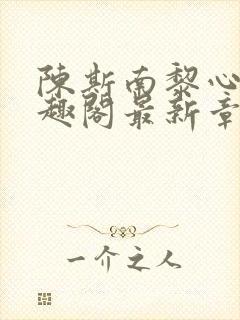 陈斯南黎心
趣阁最新章
一介之人